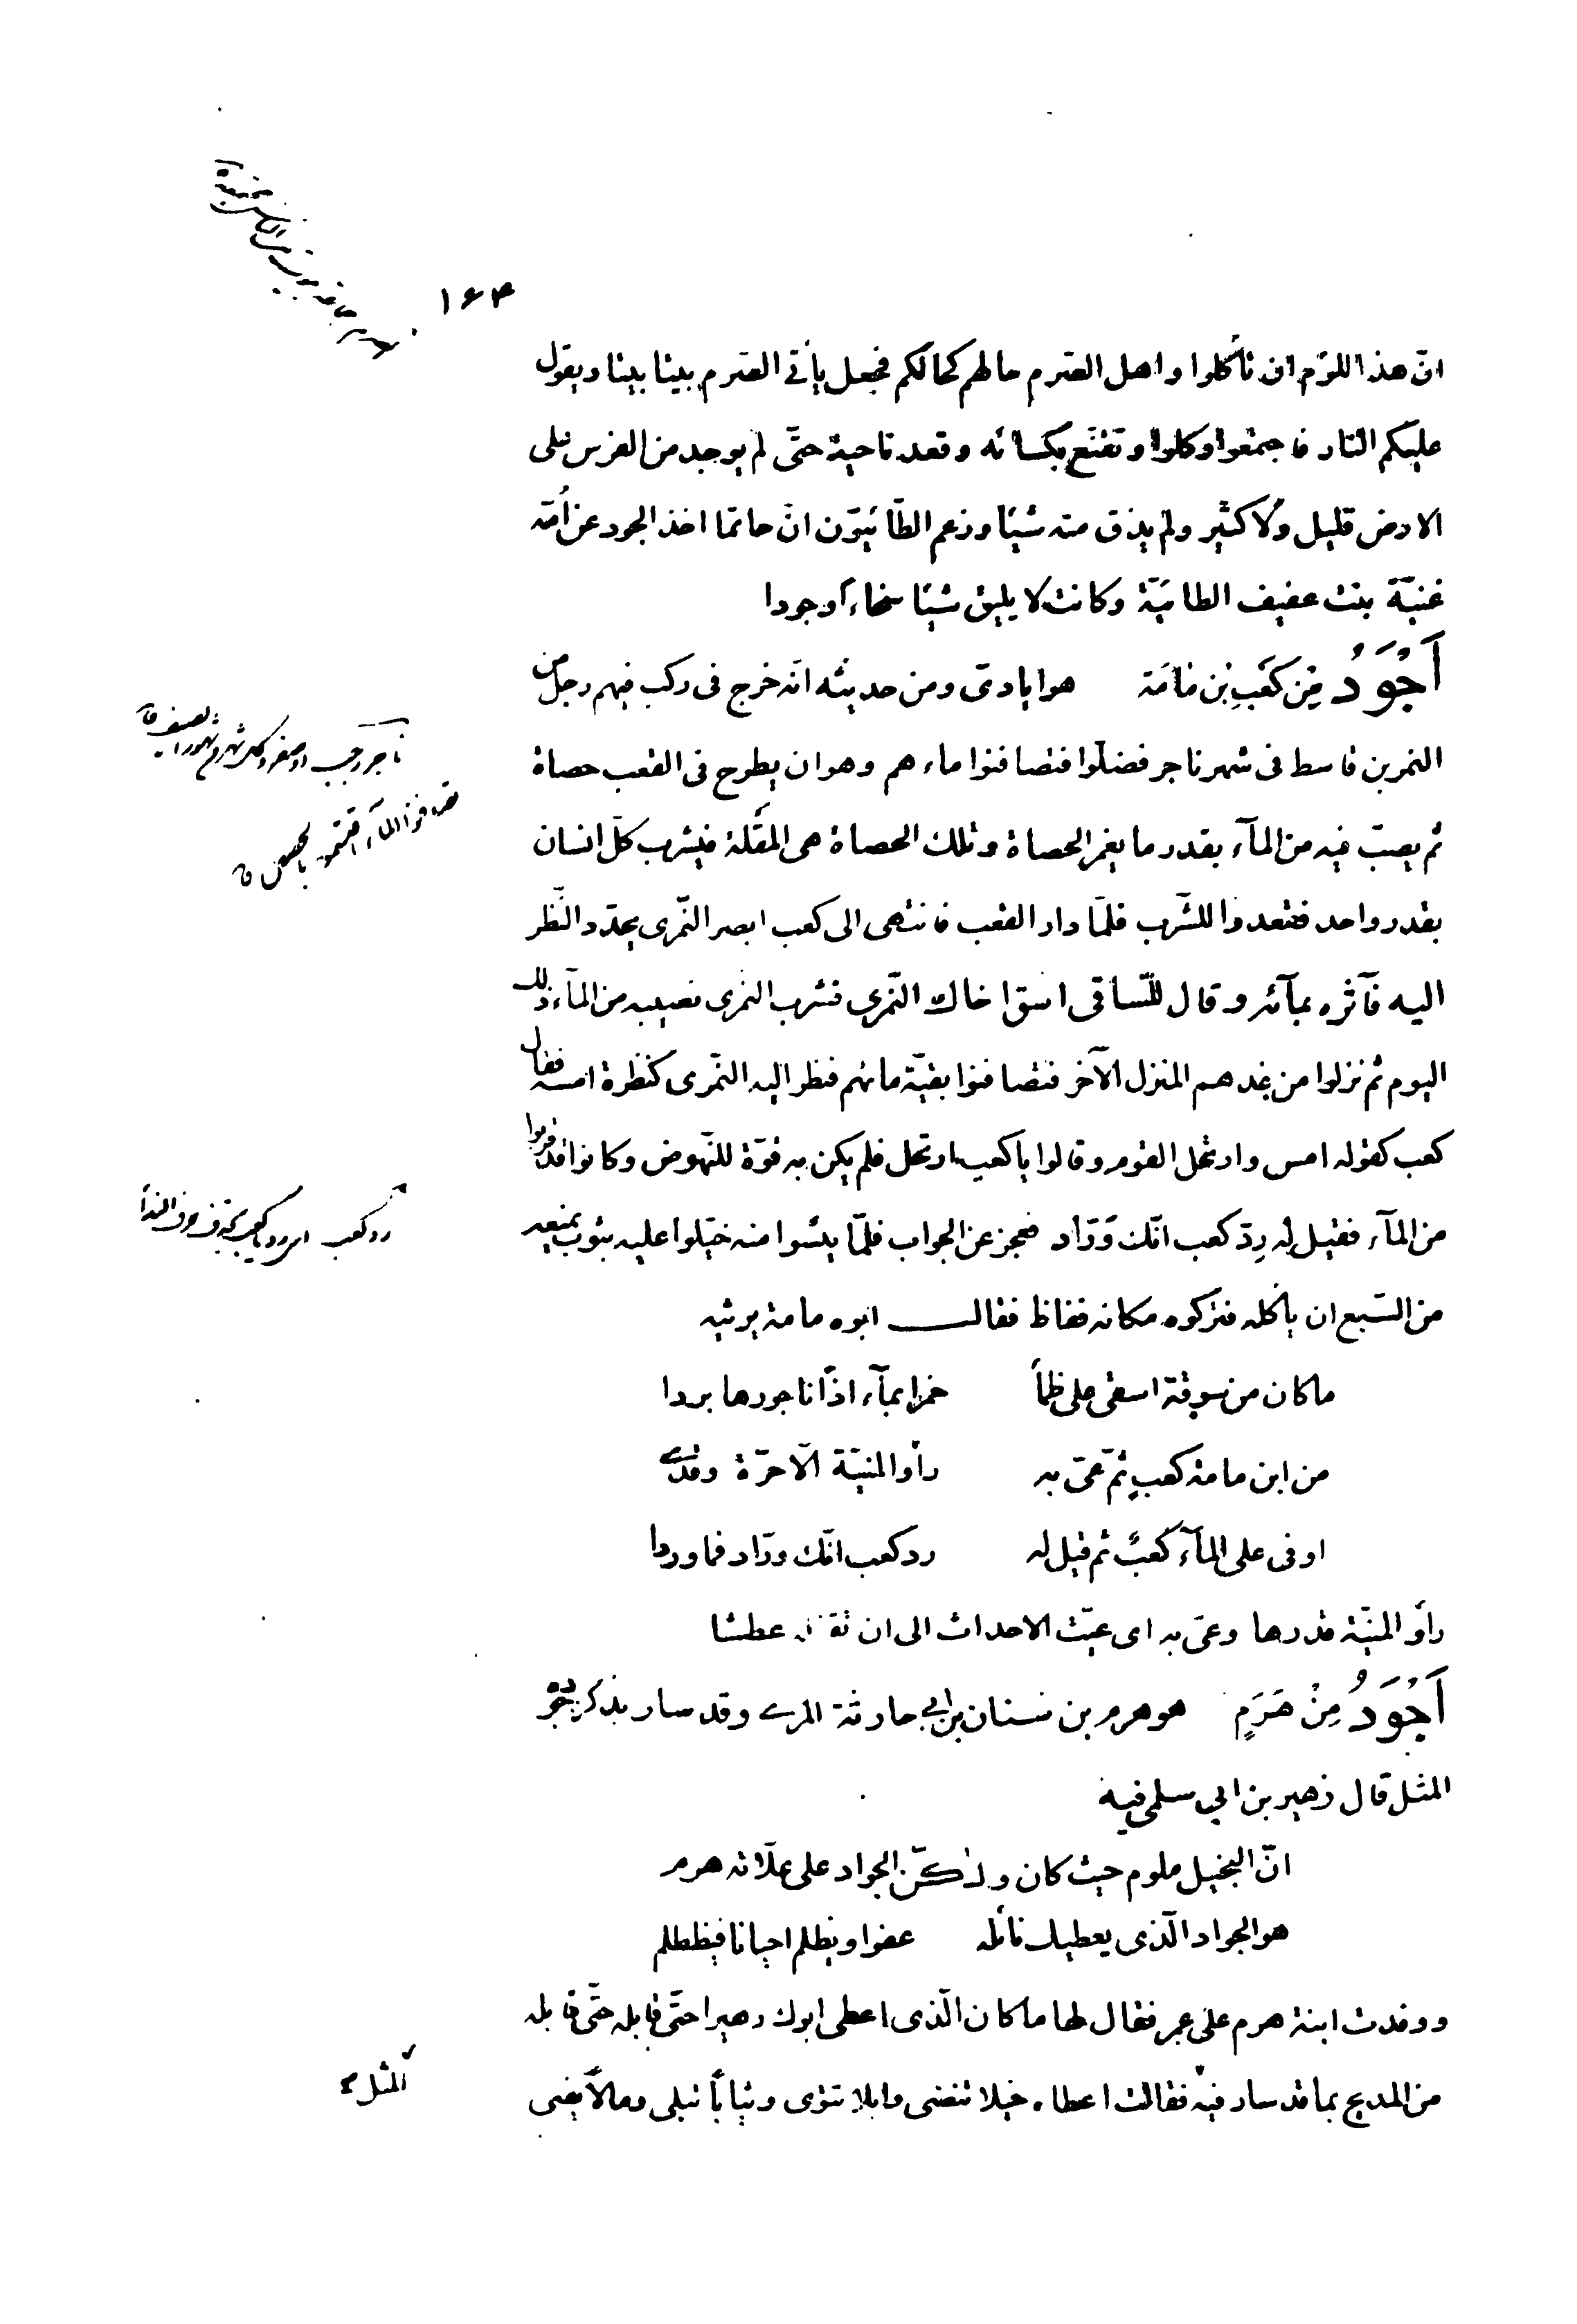 ١۶۳
انّ هذا اللؤم ان تأكلوا واهل الصرم حالهم كحالكم فجعل يأتى الصرم بيتا بيتا ويقول
عليكم النار فاجتمعوا وكلوا وتقنّع بكسائه وقعد ناحية حتّى لم يوجد من الفرس على
الارض قليل ولا كثير ولم يذق منه شيئا وزعم الطّائيّون انّ حاتما اخذ الجود عن اُمّه
غنيّة بنت عفيف الطائيّة وكانت لا يليق شيئا سخاء وجودا
اَجْوَدُ مِن كَعْبِ بْن مٰامَة هو ايادىّ ومن حديثه انّه خرج فى ركب فيهم رجل من
النمر بن قاسط فى شهر ناجر فضلّوا فتصافنوا ماءهم وهو ان يطرح فى القعب حصاة
ثم يصبّ فيه من المآء بقدر ما يغمر الحصاة وتلك الحصاة هى المقلة فيشرب كلّ انسان
بقدر واحد فقعدوا للشّرب فلمّا دار القعب فانتهى الى كعب ابصر النّمرى يحدّد النّظر
اليه فآثره بمآئه وقال للسّاقى اسق اخاك النّمرى فشرب النمرى نصيبه من المآء ذلك
اليوم ثم نزلوا من غدهم المنزل الآخر فتصافنوا بقيّة مائهم فنظر اليه النّمرى كنظرة امسه فقال
كعب كقوله امس وارتحل القوم وقالوا يا كعب ارتحل فلم يكن به قوّة للنّهوض وكانوا قد قربوا
من المآء فقيل له رِد كعب انّك وَرّاد فعجز عن الجواب فلمّا يئسوا منه خيّلوا عليه بثوب يمنعه
من السّبع ان يأكله فتركوه مكانه ففاظ فقال ابوه مامة يرثيه
ما كان من سوقة اسقى على ظمأ خمرا بمآء اذا ناجودها بردا
من ابن مامة كعبٍ ثمّ عىّ به زأو المنيّة الّا حرّة وقدى
اوفى على المآء كعبٌ ثم قيل له رد كعب انّك ورّاد فما وردا
زأو المنيّة قدرها وعىّ به اى عيّت الاحداث الى ان عطشا
اَجْوَدُ مِنْ هَرَمٍ هو هرم بن سنان بن ابى حارثة المرى وقد سار بذكر جوده
المثل قال زهير بن ابى سلمى فيه
انّ البخيل ملوم حيث كان ولٰكنّ الجواد على علّاته هرم
هو الجواد الّذى يعطيك نائله عفوا ويظلم احيانا فيظطلم
ووفدت ابنة هرم على عمر فقال لها ما كان الّذى اعطى ابوك زهيرا حتّى قابله حتّى قابله
من المديح بما قد سار فيه فقالت اعطاه خيلا تنضى وابلا تتوى وثياباً تبلى ومالاً يفنى
المثل